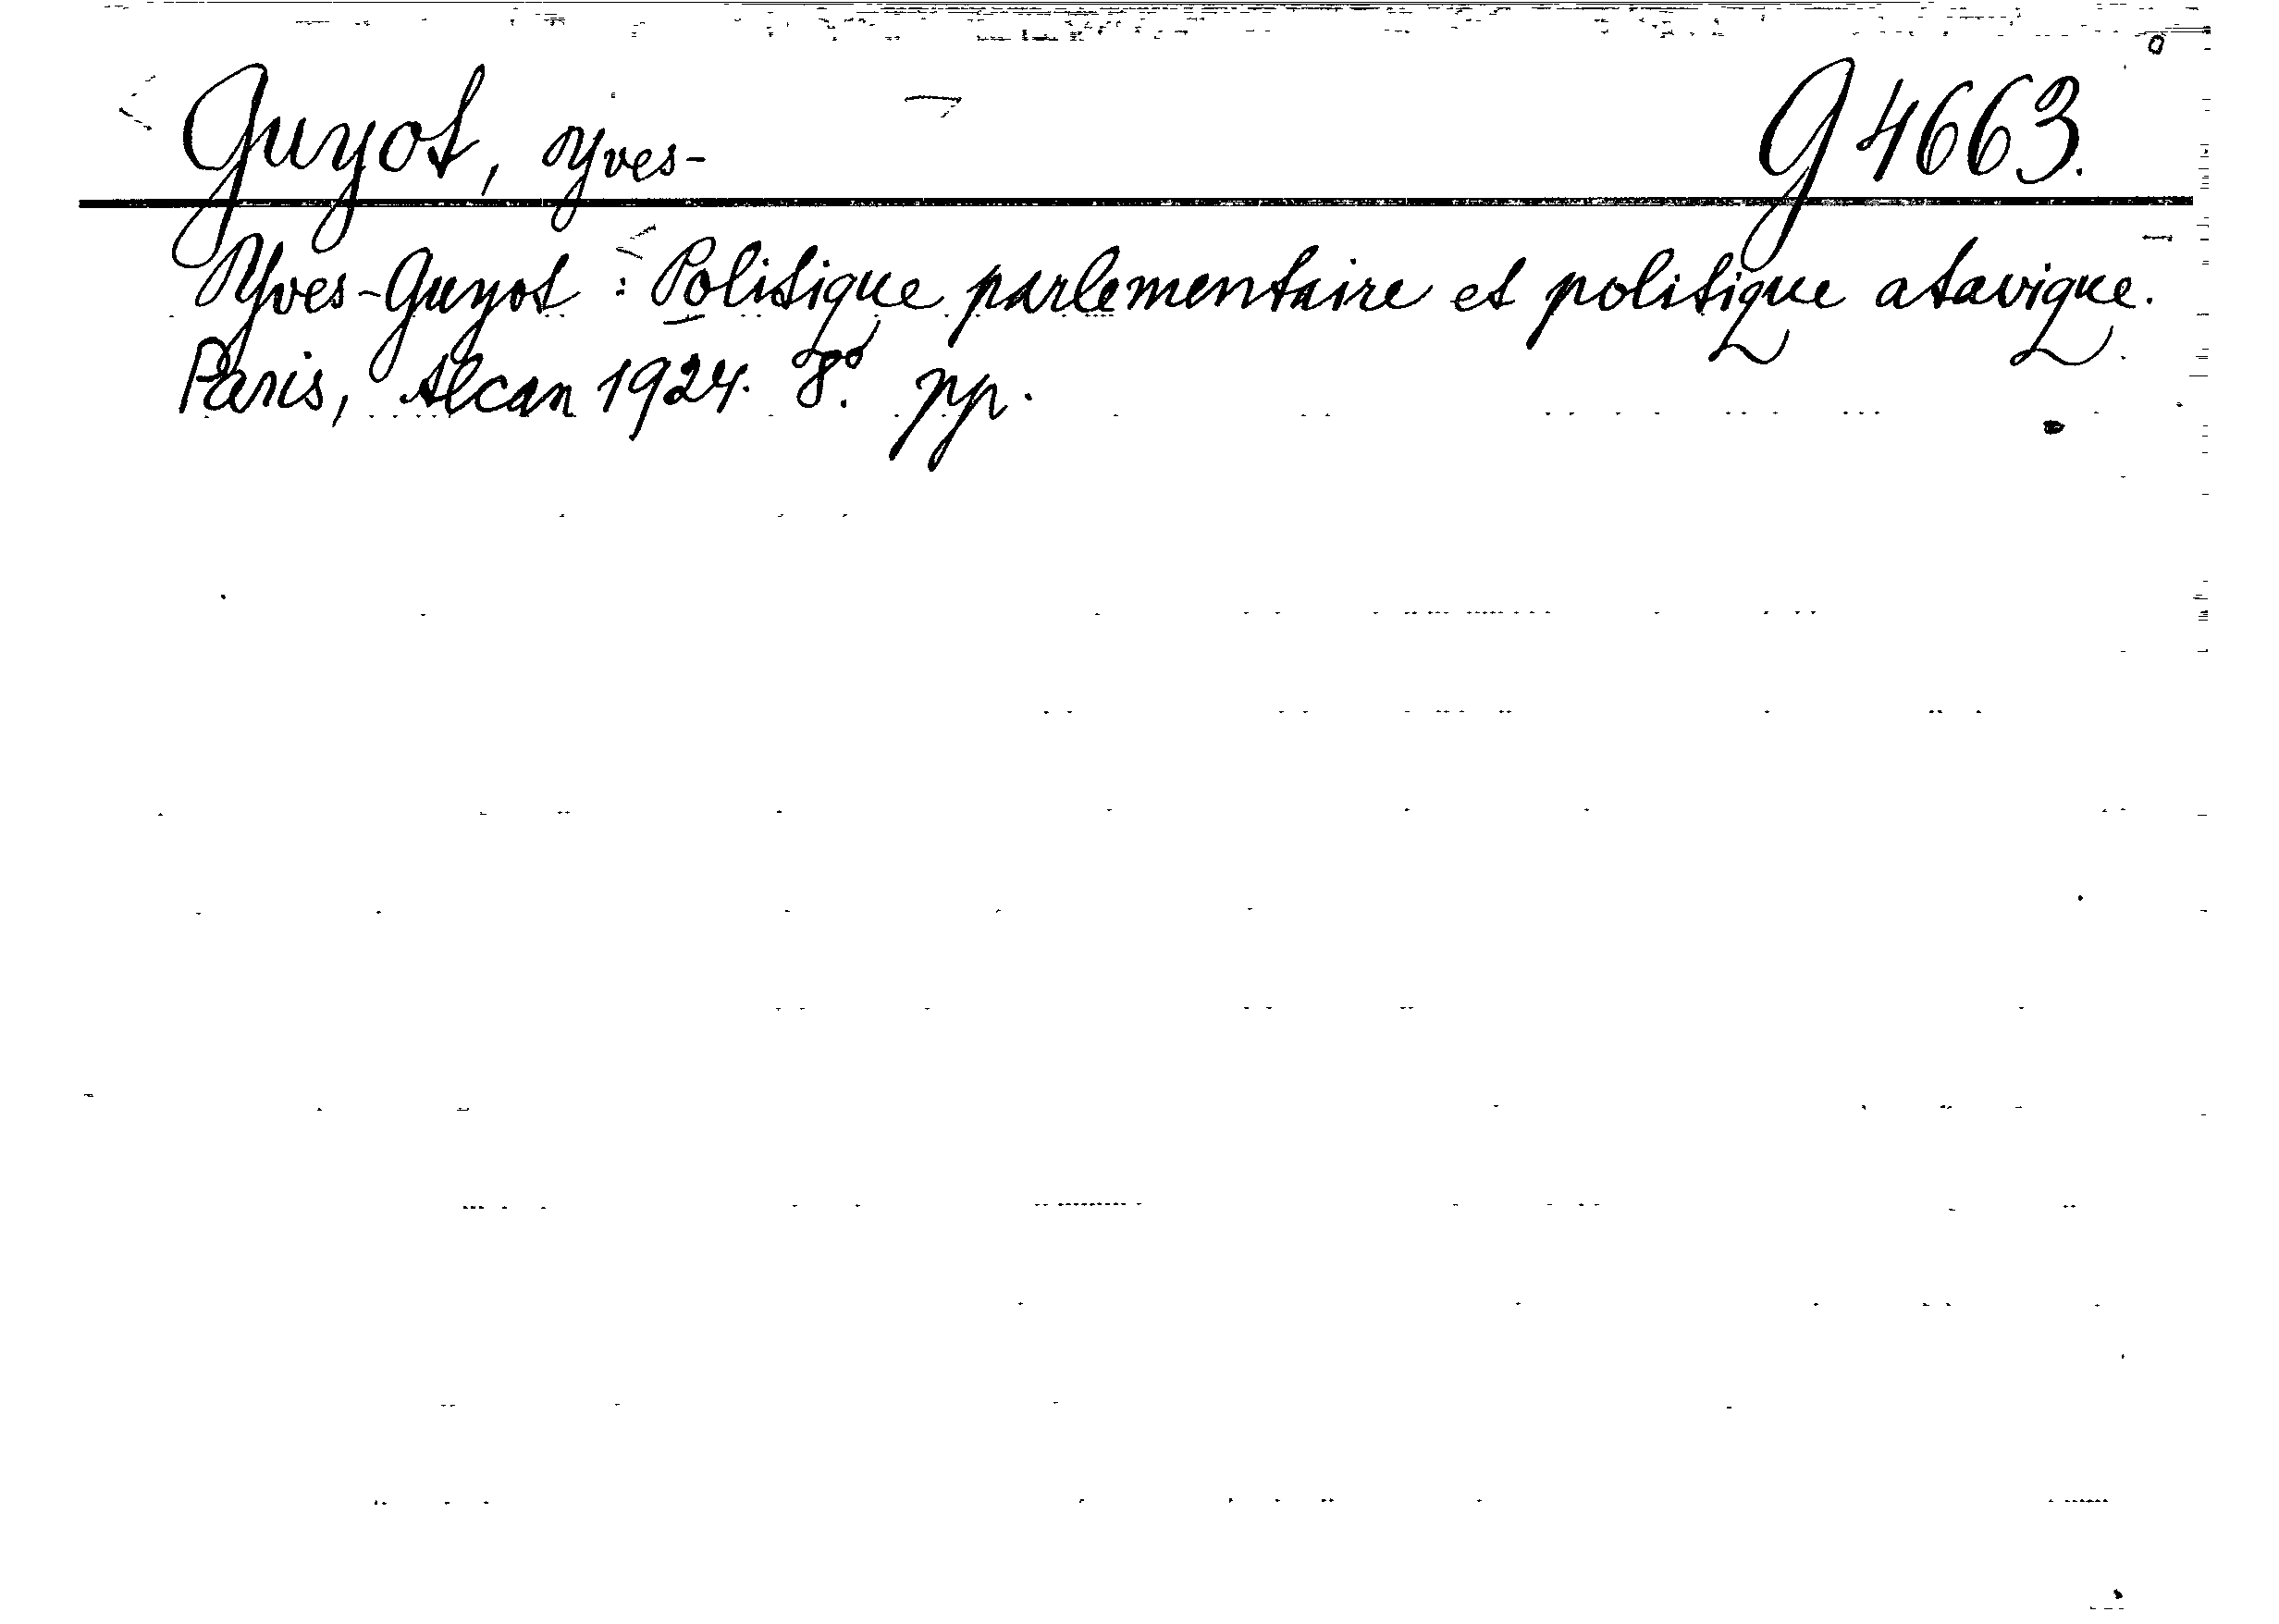 Guyot, Yves- G 4663.
Yves-Guyot : Politique parlementaire et politique atavique.
Paris, Alcan 1924. 8º. pp.